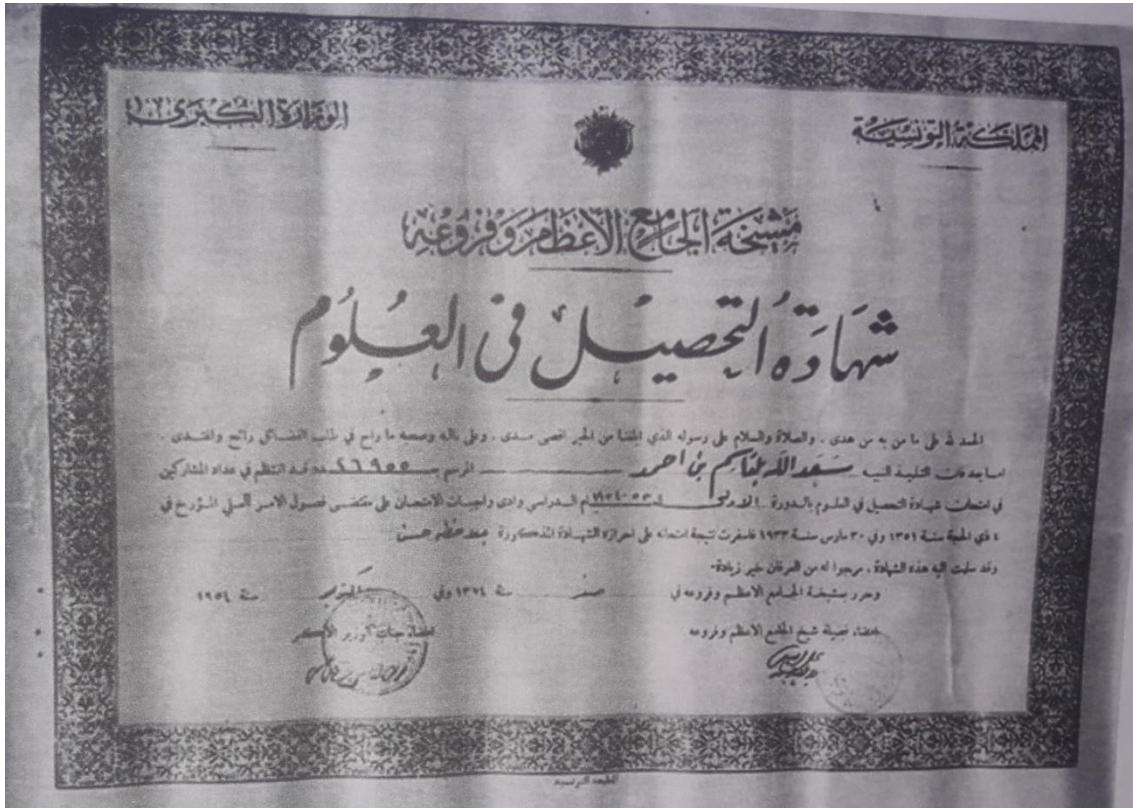 المملكة التونسية
الوزارة الكبرى
مشيخة الجامع الأعظم وفروعه
شهادة التحصيل في العلوم
الحمد لله على ما من به من هدى ، والصلاة والسلام على رسوله الذي ابلغنا من الخير اقصى مدى ، وعلى ءاله وصحبه ما راح في طلب الفضائل رائح واغتدى ،
اما بعد فان التلميذ النبيه سعد الله بلقاسم بن احمد المرسم عدد ٢٦٩٥٥ قد انتظم في عداد المشاركين
في امتحان شهادة التحصيل في العلوم بالدورة الاولى ٥٣-١٩٥٤ الدراسي وادى واجبات الامتحان على مقتضى فصول الامر العلي المؤرخ في
٤ ذي الحجة سنة ١٣٥١ وفي ٣٠ مارس سنة ١٩٣٣ فاسفرت نتيجة امتحانه على احرازه الشهادة المذكورة بملاحظة حسن
وقد سلمت اليه هذه الشهادة ، مرجوا له من العرفان خير زيادة-
وحرر بمشيخة الجامع الاعظم وفروعه في صفر سنة ١٣٧٤ وفي اكتوبر سنة ١٩٥٤
امضاء فضيلة شيخ الجامع الاعظم وفروعه
امضاء جناب الوزير الاكبر